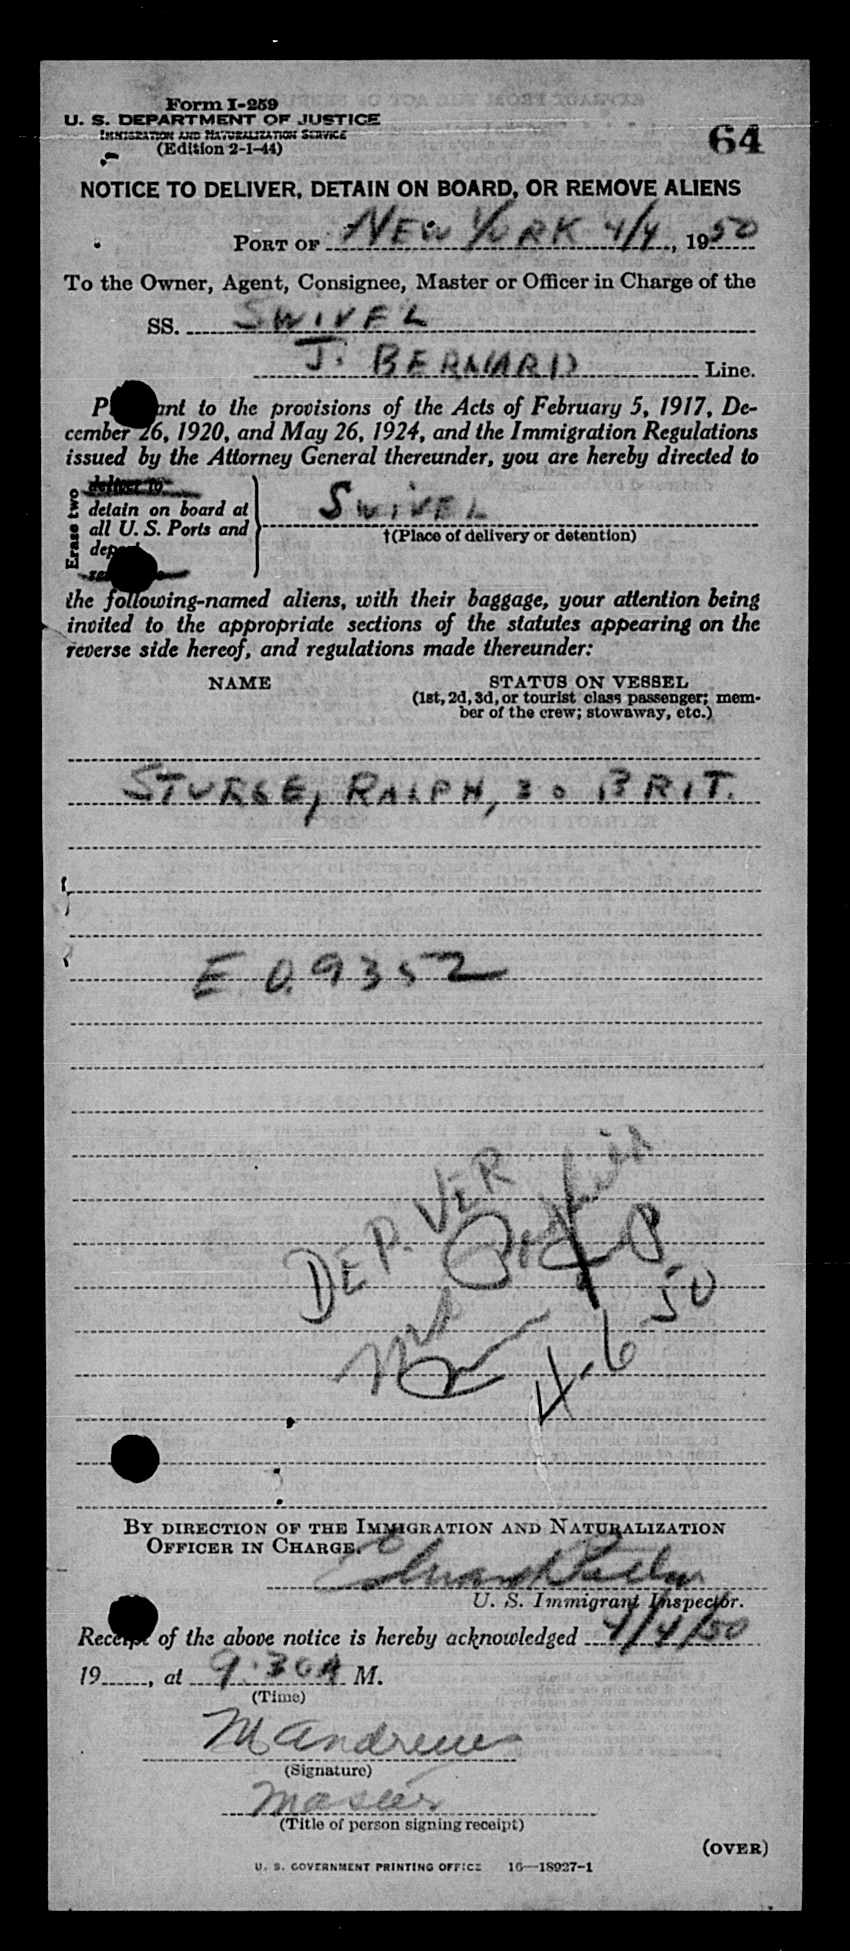 Form I-259
U. S. DEPARTMENT OF JUSTICE
IMMIGRATION AND NATURALIZATION SERVICE
(Edition 2-1-44)
64
NOTICE TO DELIVER, DETAIN ON BOARD, OR REMOVE ALIENS
PORT OF NEW YORK 4/4, 1950
To the Owner, Agent, Consignee, Master or Officer in Charge of the
SS. SWIVEL
J. BERNARD Line.
P ant to the provisions of the Acts of February 5, 1917, De-
cember 26, 1920, and May 26, 1924, and the Immigration Regulations
issued by the Attorney General thereunder, you are hereby directed to
Erase two
deliver to
detain on board at
all U. S. Ports and
depart
SWIVEL
†(Place of delivery or detention)
the following-named aliens, with their baggage, your attention being
invited to the appropriate sections of the statutes appearing on the
reverse side hereof, and regulations made thereunder:
NAME
STATUS ON VESSEL
(1st, 2d, 3d, or tourist class passenger; mem-
ber of the crew; stowaway, etc.)
STURGE, RALPH, 30 BRIT.
E.O. 9352
DEP. VER
4-6-50
BY DIRECTION OF THE IMMIGRATION AND NATURALIZATION
OFFICER IN CHARGE.
U. S. Immigrant Inspector.
Receipt of the above notice is hereby acknowledged 4/4/50
19 , at 9.30A M.
(Time)
M Andrews
(Signature)
Master
(Title of person signing receipt)
(OVER)
U. S. GOVERNMENT PRINTING OFFICE 16—18927-1